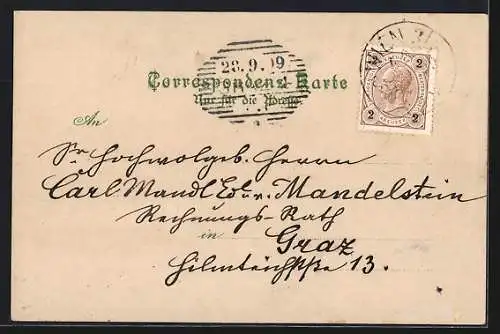 WIEN
28.9.99
Correspondenz-Karte
Nur für die Adresse
2 2
2 2
An
Sr Hochwolgeb. Herrn
Carl Mandl Edl. v. Mandelstein
Rechnungs-Rath
in Graz
Hilmteichstrße 13.